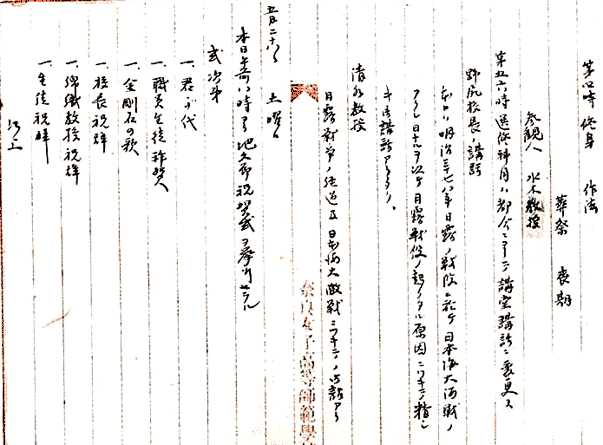 第四時 修身 作法
葬祭 喪期
参観人 水木教授
第五六時選修科目ハ都合ニヨリテ講堂講話ニ変更ス
野尻校長ノ講話
本日ハ明治三十八年日露ノ戦役ニ於ケル日本海大海戦ノ
アリシ日ナルヲ以テ日露戦役ノ起リタル原因ニツキテ精シ
キ御講話アリタリ、
清水教授
日露戦争ノ経過及日本海大海戦ニツキテノ御話アリ
五月二十八日 土曜日
本日午前八時ヨリ地久節祝賀式ヲ挙行セラル
式次第
一、君が代
一、職員生徒拝賀
一、金剛石の歌
一、校長祝辞
一、教授祝辞
一、生徒祝辞
以上
奈良女子高等師範學